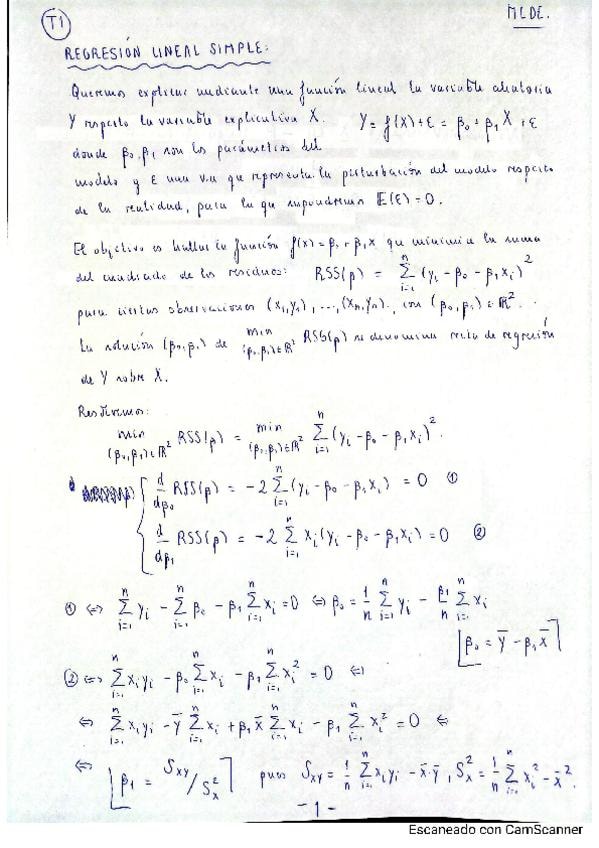 T1
MLDE.
REGRESIÓN LINEAL SIMPLE:
Queremos explicar mediante una función lineal la variable aleatoria
Y respecto la variable explicativa X. Y = f(X)+ε = β₀ + β₁X + ε
donde β₀, β₁ son los parámetros del
modelo y ε una v.a que representa la perturbación del modelo respecto
de la realidad, para la que supondremos E(ε) = 0.
El objetivo es hallar la función f(x) = β₀ + β₁x que minimiza la suma
del cuadrado de los residuos: RSS(β) = Σ_{i=1}^{n} (yᵢ - β₀ - β₁xᵢ)²
para ciertas observaciones (x₁,y₁), ..., (xₙ,yₙ). con (β₀,β₁) ∈ ℝ².
La solución (β₀,β₁) de min_{(β₀,β₁)∈ℝ²} RSS(β) se denomina recta de regresión
de Y sobre X.
Resolvemos:
min_{(β₀,β₁)∈ℝ²} RSS(β) = min_{(β₀,β₁)∈ℝ²} Σ_{i=1}^{n} (yᵢ - β₀ - β₁xᵢ)².
d/dβ₀ RSS(β) = -2 Σ_{i=1}^{n} (yᵢ - β₀ - β₁xᵢ) = 0 ①
d/dβ₁ RSS(β) = -2 Σ_{i=1}^{n} xᵢ(yᵢ - β₀ - β₁xᵢ) = 0 ②
① ⇔ Σ_{i=1}^{n} yᵢ - Σ_{i=1}^{n} β₀ - β₁ Σ_{i=1}^{n} xᵢ = 0 ⇔ β₀ = 1/n Σ_{i=1}^{n} yᵢ - β₁/n Σ_{i=1}^{n} xᵢ
β₀ = ȳ - β₁x̄
② ⇔ Σ_{i=1}^{n} xᵢyᵢ - β₀ Σ_{i=1}^{n} xᵢ - β₁ Σ_{i=1}^{n} xᵢ² = 0 ⇔
⇔ Σ_{i=1}^{n} xᵢyᵢ - ȳ Σ_{i=1}^{n} xᵢ + β₁x̄ Σ_{i=1}^{n} xᵢ - β₁ Σ_{i=1}^{n} xᵢ² = 0 ⇔
⇔ β₁ = Sxy/Sx² pues Sxy = 1/n Σ_{i=1}^{n} xᵢyᵢ - x̄·ȳ, Sx² = 1/n Σ_{i=1}^{n} xᵢ² - x̄².
-1-
Escaneado con CamScanner